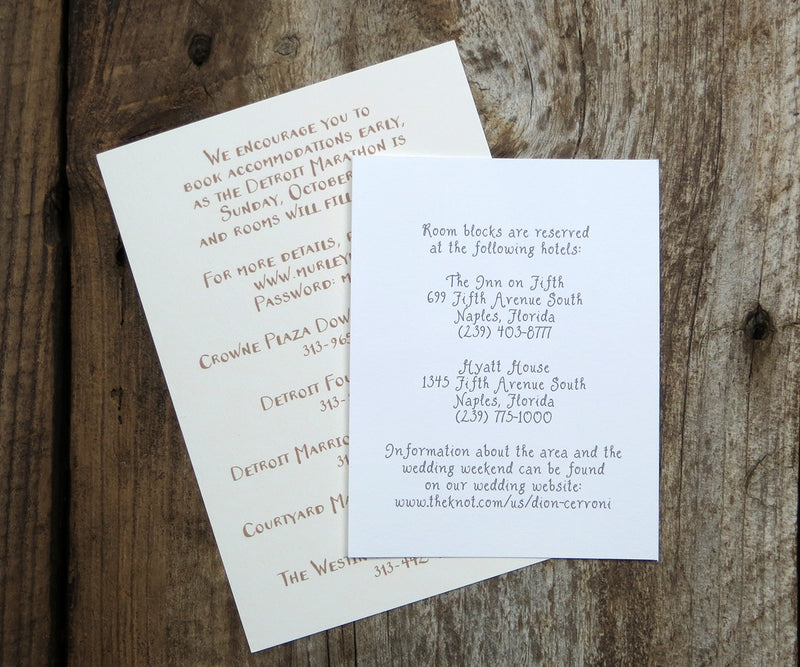 We encourage you to
book accommodations early,
as the Detroit Marathon is
Sunday, October
and rooms will fill
For more details,
www.murley
Password:
Crowne Plaza Dow
313-965
Detroit Fou
313-
Detroit Marrio
31
Courtyard Ma
31
The Westin
313-442
Room blocks are reserved
at the following hotels:
The Inn on Fifth
699 Fifth Avenue South
Naples, Florida
(239) 403-8777
Hyatt House
1345 Fifth Avenue South
Naples, Florida
(239) 775-1000
Information about the area and the
wedding weekend can be found
on our wedding website:
www.theknot.com/us/dion-cerroni